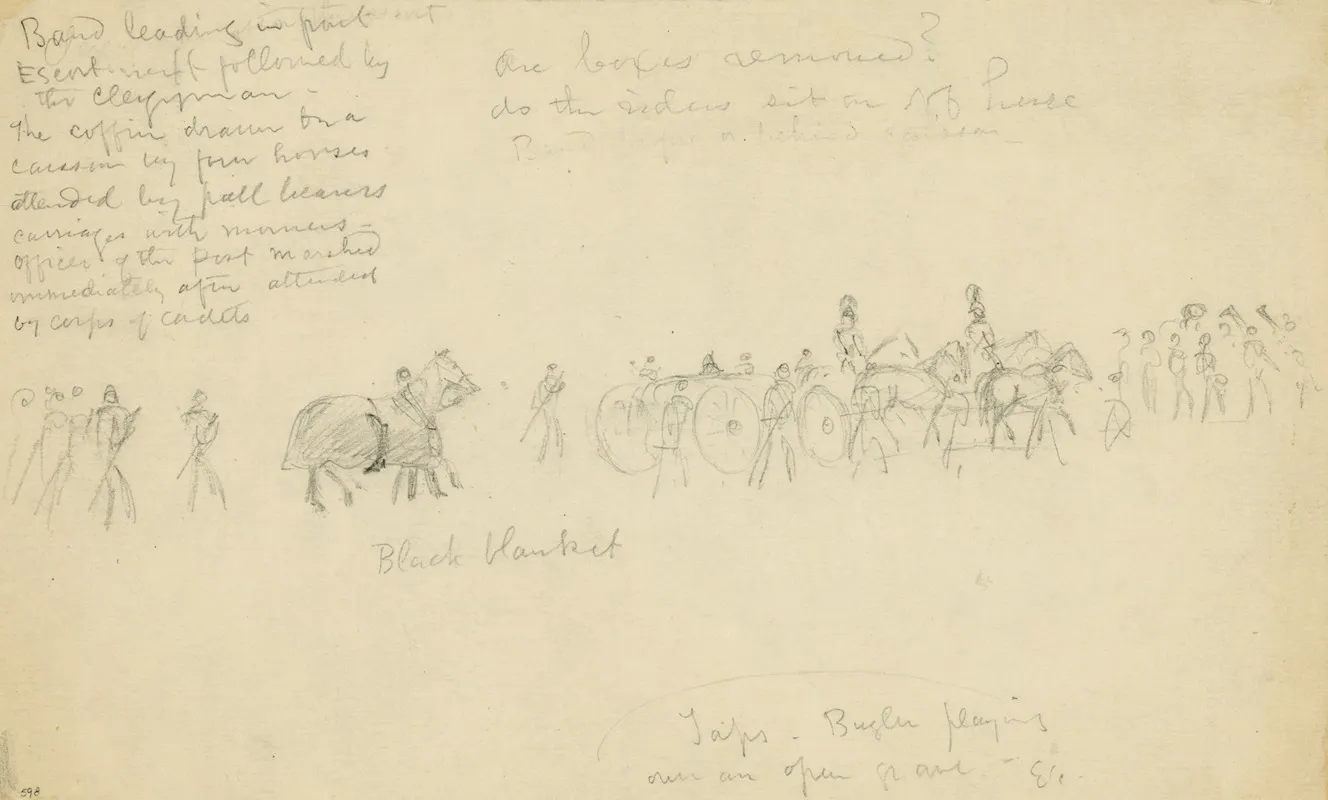 Band leading in front
Escort next followed by
the clergyman -
The coffin drawn on a
caisson by four horses
attended by pall bearers
carriages with mourners -
officers of the post marched
immediately after attended
by corps of cadets
Are boxes removed?
do the riders sit on off horse
Band or behind caisson
Black blanket
Taps - Bugler playing
over an open grave - Etc.
598